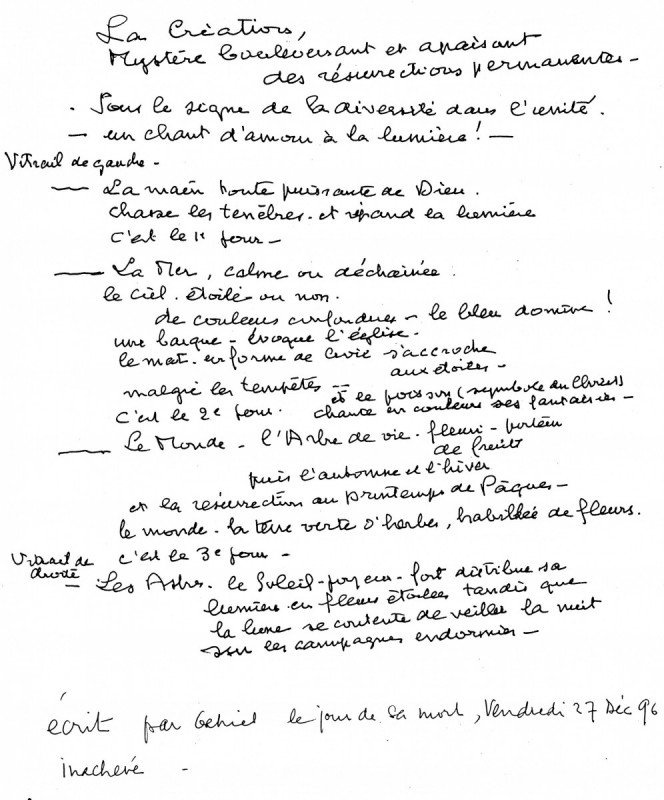 La Création,
Mystère bouleversant et apaisant
des résurrections permanentes -
. Sous le signe de la diversité dans l'unité.
- un chant d'amour à la lumière ! -
Vitrail de gauche -
— La main toute puissante de Dieu.
chasse les tenèbres. et répand la lumière
c'est le 1r jour -
— La Mer, calme ou déchainée.
le ciel. étoilé ou non.
de couleurs confondues - le bleu domine !
une barque - évoque l'église.
le mat. en forme de croix s'accroche
aux étoiles -
malgré les tempêtes -
et le poisson (symbole du Christ)
c'est le 2e jour. chante en couleurs ses fantaisies -
— Le Monde - l'Arbre de vie - fleuri - porteur
de fruits
puis l'automne et l'hiver
et la résurrection au printemps de Pâques -
le monde - la terre verte d'herbes, habillée de fleurs.
c'est le 3e jour -
Vitrail de droite
- Les Astres. le Soleil - joyeux - fort distribue sa
lumière en fleurs étoilées tandis que
la lune se contente de veiller la nuit
sur les campagnes endormies -
écrit par le jour de sa mort, Vendredi 27 Déc 96
inachevé -